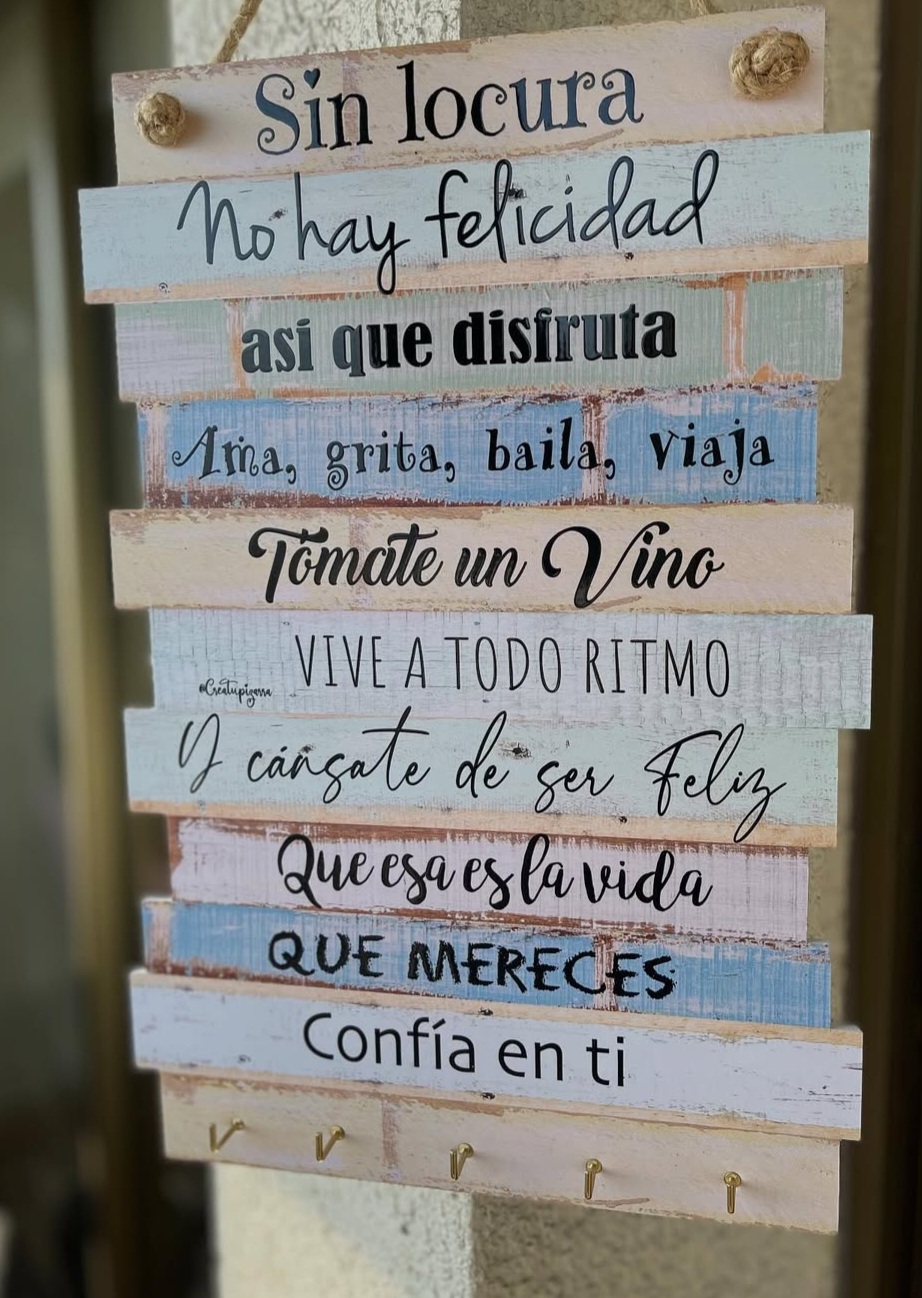 Sin locura
No hay felicidad
asi que disfruta
Ama, grita, baila, viaja
Tómate un Vino
VIVE A TODO RITMO
@Creatupizarra
Y cánsate de ser Feliz
Que esa es la vida
QUE MERECES
Confía en ti